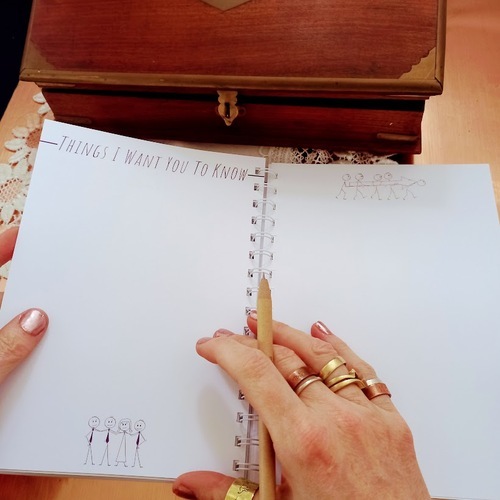 Things I Want You To Know